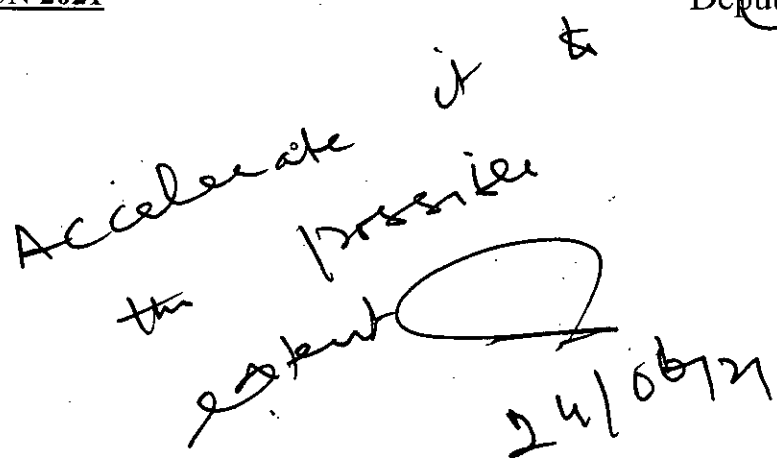 2021
Deput
Accelerate it to
the possible
extent
24/06/21